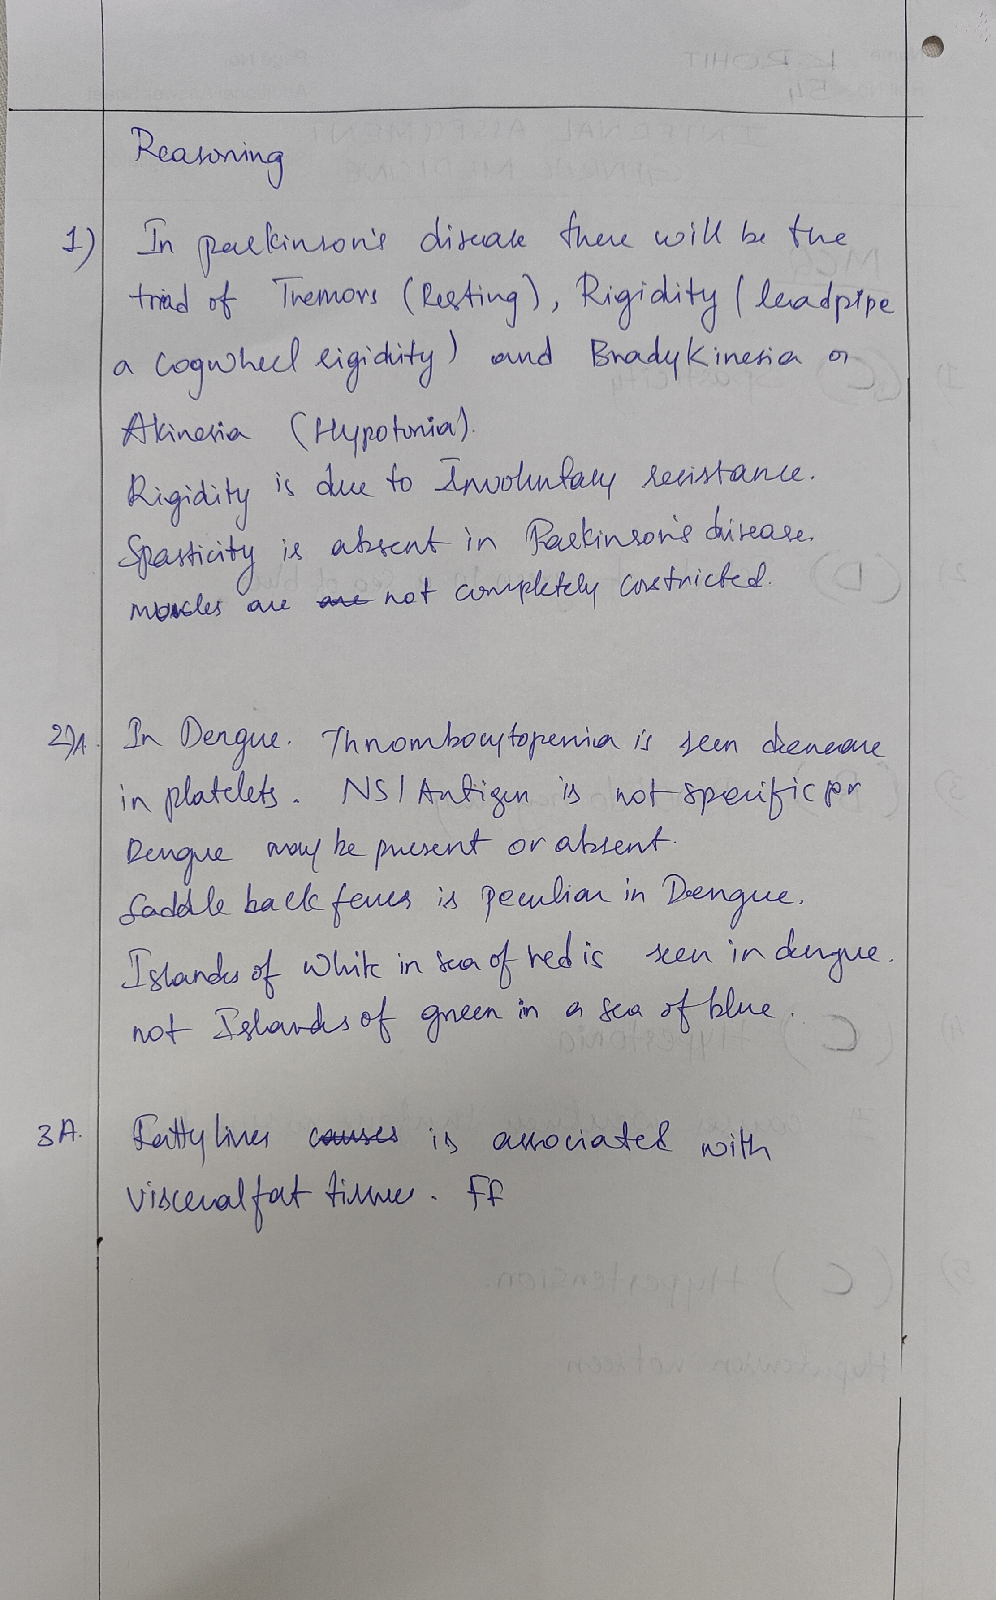 Reasoning
1) In parkinson's disease there will be the
triad of Tremors (Resting), Rigidity (leadpipe
a Cogwheel rigidity) and Bradykinesia or
Akinesia (Hypotonia).
Rigidity is due to Involuntary resistance.
Spasticity is absent in Parkinson's disease.
muscles are are not completely constricted.
2)A. In Dengue. Thrombocytopenia is seen decrease
in platelets. NS1 Antigen is not specific for
Dengue may be present or absent.
Saddle back fever is peculiar in Dengue.
Islands of white in sea of red is seen in dengue.
not Islands of green in a sea of blue.
3A. Fatty liver causes is associated with
visceral fat tissue. Ff